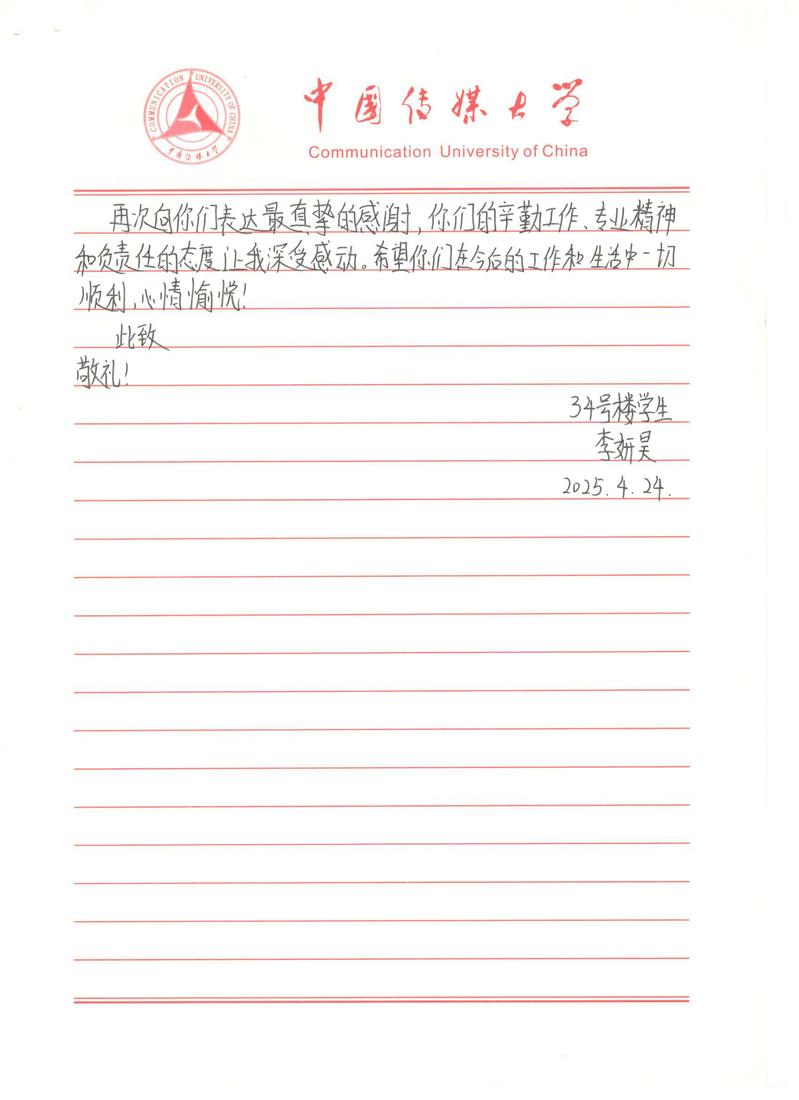 COMMUNICATION UNIVERSITY OF CHINA
中国传媒大学
中国传媒大学
Communication University of China
再次向你们表达最真挚的感谢,你们的辛勤工作、专业精神
和负责任的态度让我深受感动。希望你们在今后的工作和生活中一切
顺利,心情愉悦!
此致
敬礼!
34号楼学生
李妍昊
2025.4.24.